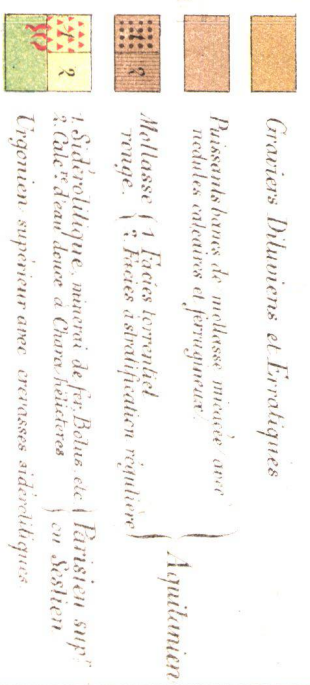 Graviers Diluviens et Erratiques
Puissants bancs de mollasse micacée avec
nodules calcaires et ferrugineux
Mollasse { 1. Faciès torrentiel
rouge. { 2. Faciès à stratification régulière
Aquitanien
1. Sidérolitique, minerai de fer, Bolus, etc
2. Calc.re d'eau douce à Chara, hélicteres
Parisien sup.r
ou Sestien
Urgonien supérieur avec crevasses sidérolitiques
1
2
1
2